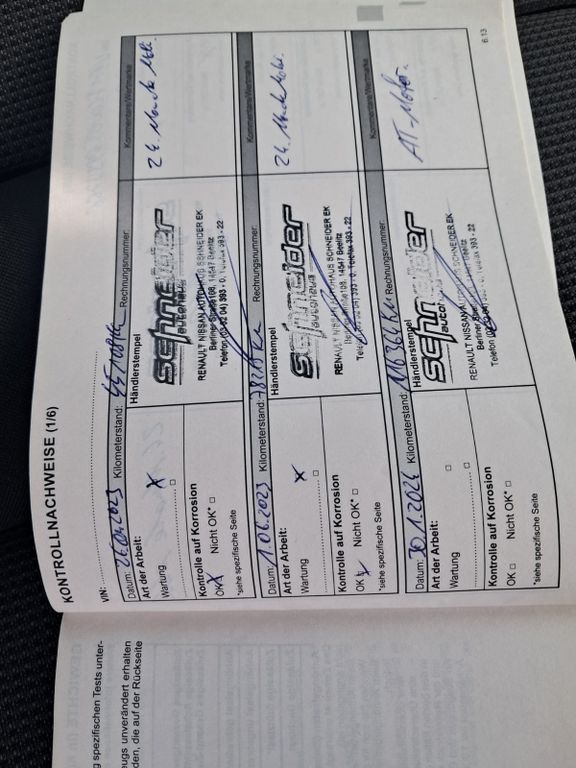 KONTROLLNACHWEISE (1/6)
VIN:
Datum: 26.04.2023 Kilometerstand: Rechnungsnummer: Kommentare/Wertmarke
Art der Arbeit: Händlerstempel
Wartung
schneider
autohaus
RENAULT NISSAN AUTOHAUS SCHNEIDER EK
Berliner Straße 198, 14547 Beelitz
Telefon 03 32 04) 393 - 0, Telefax 393 - 22
24.
Kontrolle auf Korrosion
OK Nicht OK*
*siehe spezifische Seite
Datum: 1.06.2023 Kilometerstand: Rechnungsnummer: Kommentare/Wertmarke
Art der Arbeit: Händlerstempel
Wartung
schneider
autohaus
RENAULT NISSAN AUTOHAUS SCHNEIDER EK
Berliner Straße 198, 14547 Beelitz
Telefon 03 32 04) 393 - 0, Telefax 393 - 22
24.
Kontrolle auf Korrosion
OK Nicht OK*
*siehe spezifische Seite
Datum: 30.1.2024 Kilometerstand: 116364 km Rechnungsnummer: Kommentare/Wertmarke
Art der Arbeit: Händlerstempel
Wartung
schneider
autohaus
RENAULT NISSAN AUTOHAUS SCHNEIDER EK
Berliner
Telefon 393 - 0, Telefax 393 - 22
AT-Motor.
Kontrolle auf Korrosion
OK Nicht OK*
*siehe spezifische Seite
6.13
g spezifischen Tests unter-
eugs unverändert erhalten
den, die auf der Rückseite